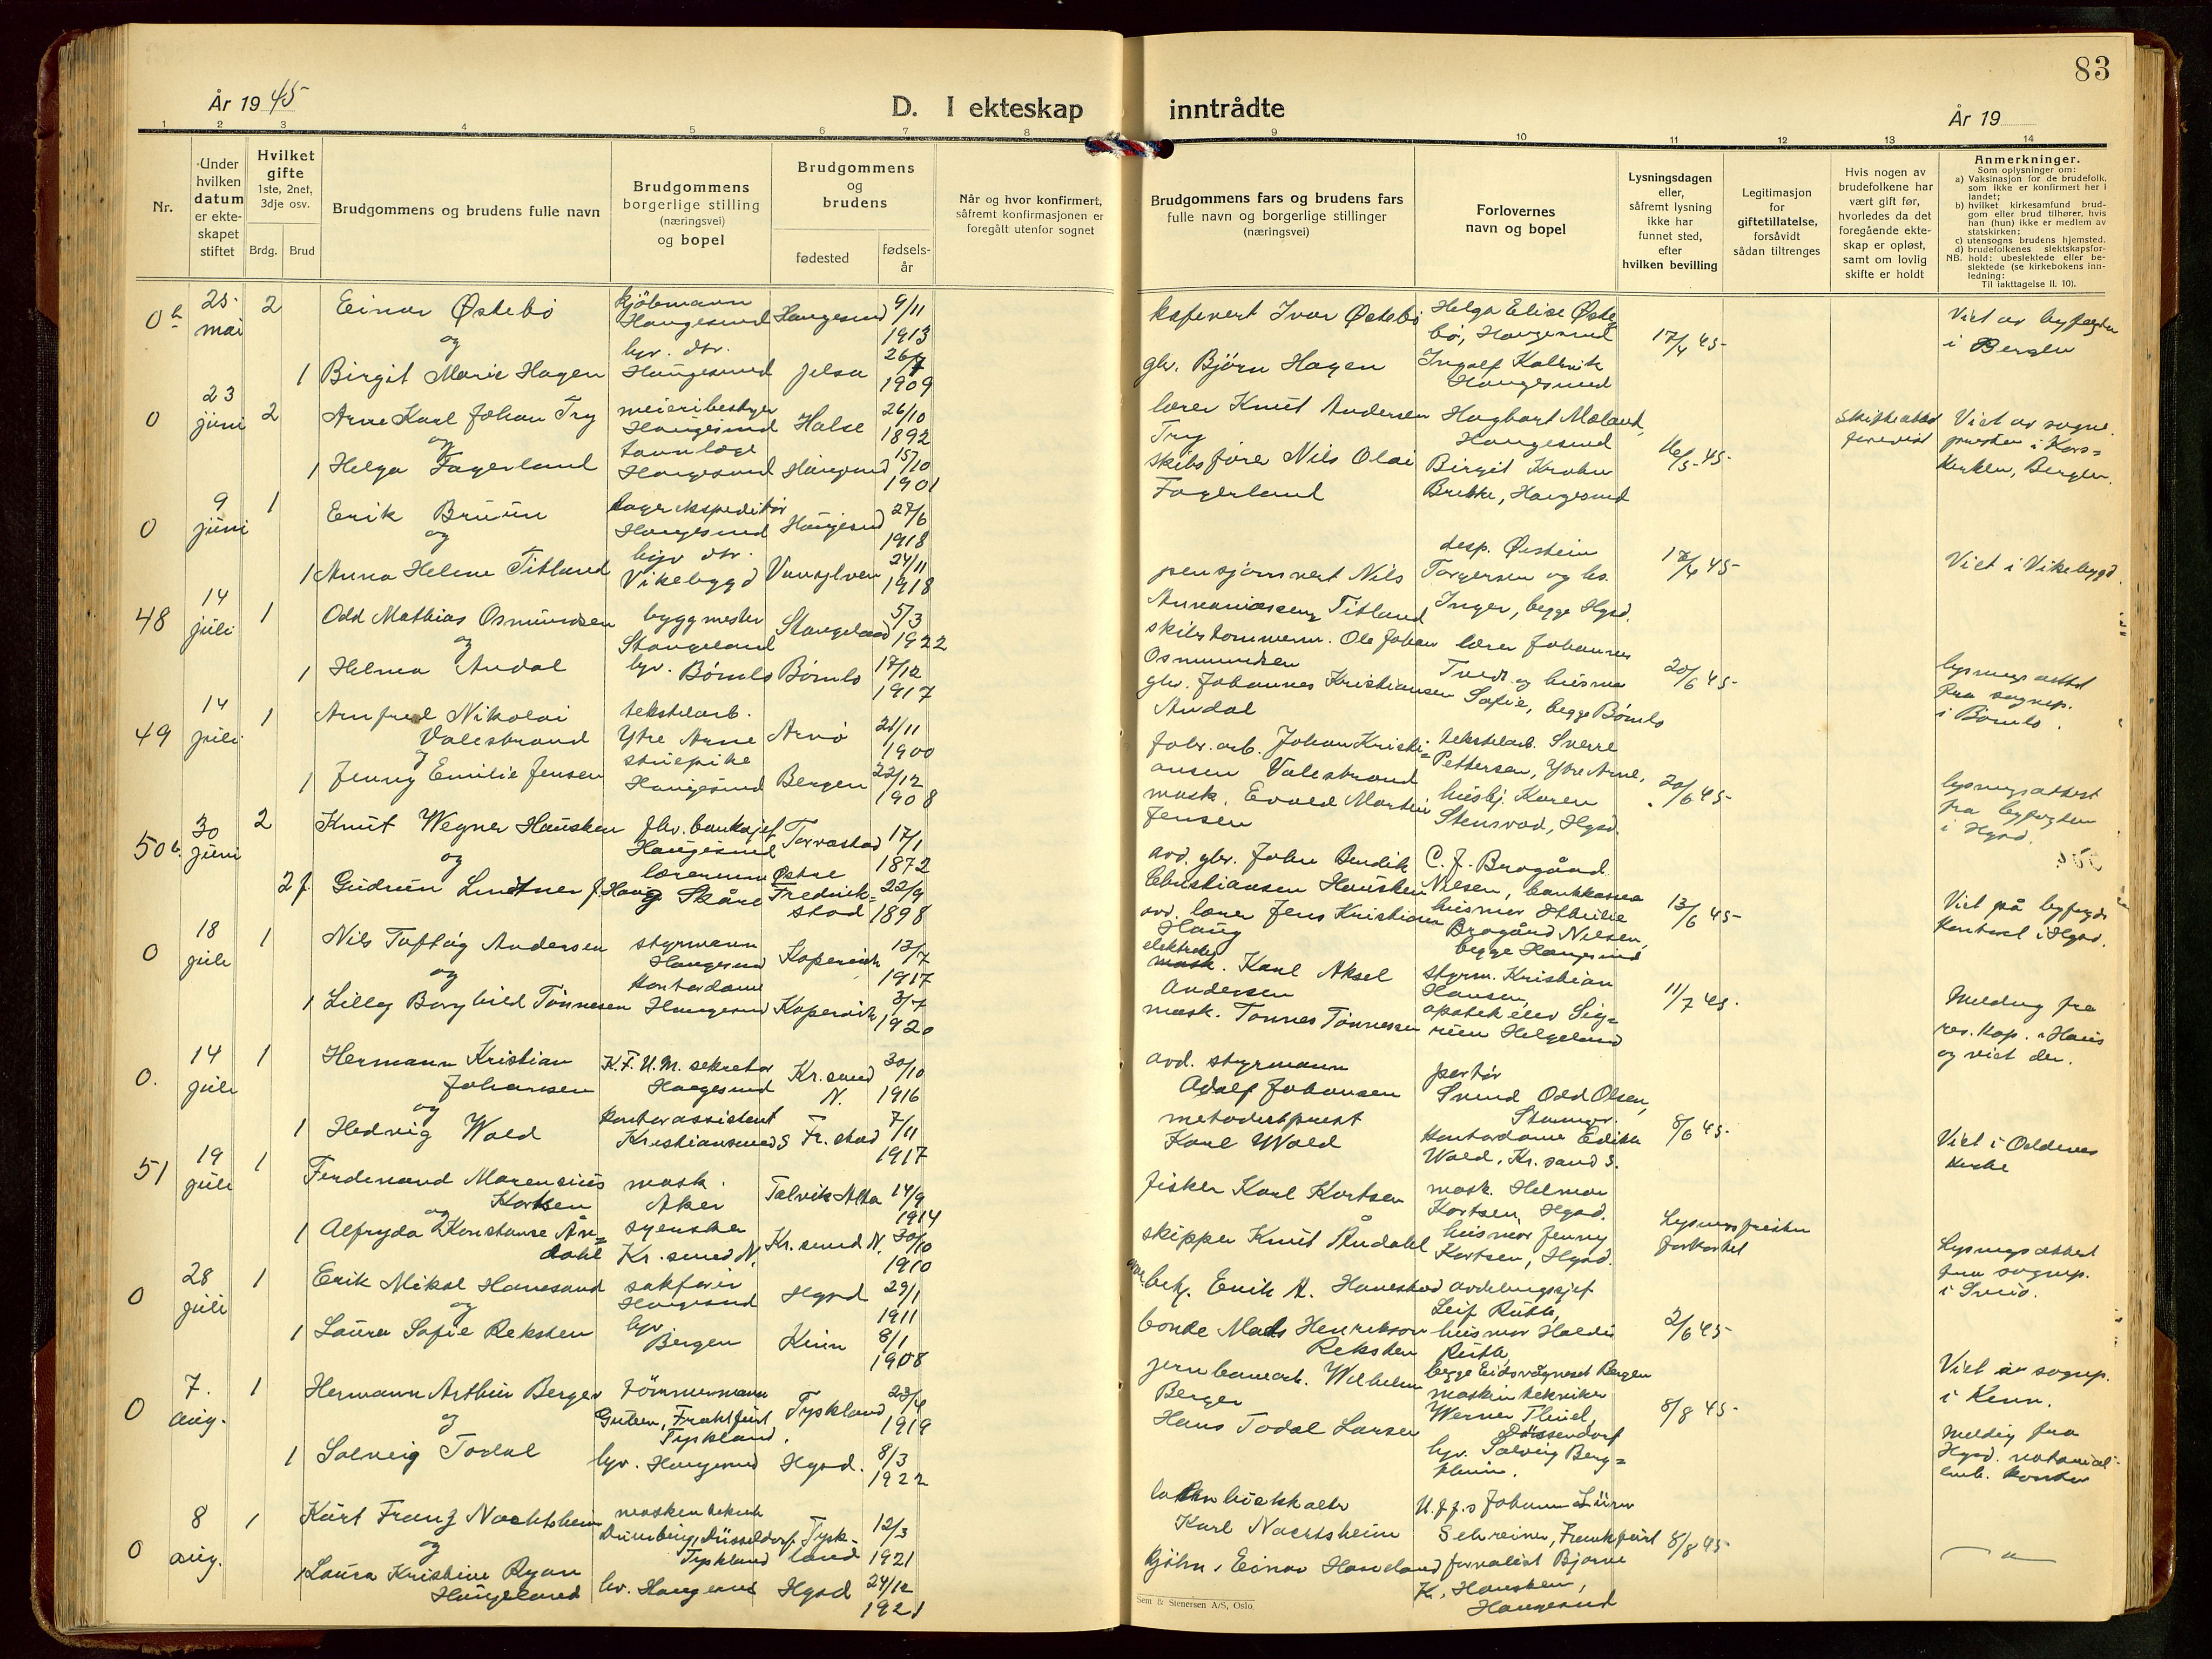 83
År 1945
D. I ekteskap inntrådte
År 19
1 2 3 4 5 6 7 8 9 10 11 12 13 14
Nr.
Under hvilken datum er ekteskapet stiftet
Hvilket gifte
1ste, 2net, 3dje osv.
Brdg. Brud
Brudgommens og brudens fulle navn
Brudgommens borgerlige stilling (næringsvei) og bopel
Brudgommens og brudens
fødested
fødselsår
Når og hvor konfirmert, såfremt konfirmasjonen er foregått utenfor sognet
Brudgommens fars og brudens fars fulle navn og borgerlige stillinger (næringsvei)
Forlovernes navn og bopel
Lysningsdagen eller, såfremt lysning ikke har funnet sted, efter hvilken bevilling
Legitimasjon for giftetillatelse, forsåvidt sådan tiltrenges
Hvis nogen av brudefolkene har vært gift før, hvorledes da det foregående ekteskap er opløst, samt om lovlig skifte er holdt
Anmerkninger.
Som oplysninger om:
a) Vaksinasjon for de brudefolk, som ikke er konfirmert her i landet;
b) hvilket kirkesamfund brudgom eller brud tilhører, hvis han (hun) ikke er medlem av statskirken;
c) utensogns brudens hjemsted.
d) brudefolkenes slektskapsforhold: ubeslektede eller beslektede (se kirkebokens innledning:
NB.
Til iakttagelse II. 10).
0 b 25 mai 2 Einar Østebø kjøbmann Haugesund Haugesund 9/11 1913 Ivar Østebø Helga Elise Østebø, Haugesund 17/4 45 Viet av byfogden i Bergen
og
1 Birgit Marie Hagen hv. dtr. Haugesund Jelsa 26/7 1909 gbr. Bjørn Hagen Ingolf Kallevik Haugesund
0 23 juni 2 Arne Karl Johan Try meieribestyrer Haugesund Halse 26/10 1892 lærer Knut Andersen Try Hagbart Mæland, Haugesund 16/5 45 Skifteattest Viet av sognepresten i Korskirken, Bergen.
og
1 Helga Fagerland tannlæge Haugesund Haugesund 15/10 1901 skibsfører Nils Olai Fagerland Birgit Krohn Brekke, Haugesund
0 9 juni 1 Erik Bruun lagerekspeditør Haugesund Haugesund 27/6 1918
og
1 Anna Helene Titland Vikebygd 24/11 1918 Nils Titland desp. Øistein Torgersen og hs. Inger, begge Hgsd. 45 Viet i Vikebygd.
48 14 juli 1 Odd Mathias Osmundsen byggmester Stangeland Stangeland 5/3 1922 skibstømmerm. Ole Johan Osmundsen lærer Johannes Tvedt og husmor Sofie, begge Bømlo 20/6 45 lysningsattest fra sognep. i Bømlo.
og
1 Helma Andal hv. Bømlo Bømlo 17/12 1917 gbr. Johannes Kristiansen Andal
49 14 juli 1 Arnfred Nikolai Valestrand tekstilarb. Ytre Arne Arne 21/11 1900 fabr. arb. Johan Kristiansen Valestrand tekstilarb. Sverre Pettersen, Ytre Arne, 20/6 45 lysningsattest fra byfogden i Hgsd.
og
1 Jenny Emilie Jensen stuepike Haugesund Bergen 22/12 1908 mask. Evald Martin Jensen husbj. Karen Stensvad, Hgsd.
50 b. 30 juni 2 Knut Wegner Hausken fhv. banksjef Haugesund Torvastad 17/1 1872 avd. gbr. John Bendik Christiansen Hausken C. J. Brogård Nilsen, bankkasserer 13/6 45 Viet på byfogdkontoret i Hgsd.
og
2 f. Gudrun Lindtner f. Haug lærerinne Skåre Østre Fredrikstad 22/9 1898 avd. lærer Jens Kristian Haug husmor Brogård Nilsen, begge Haugesund
0 18 juli 1 Nils Toftøy Andersen styrmann Haugesund Kopervik 13/7 1917 mask. Karl Aksel Andersen styrm. Kristian Hansen, 11/7 45 Melding fra res. kap. i Haus og viet der.
og
1 Lilly Borghild Tønnesen kontordame Haugesund Kopervik 3/7 1920 mask. Tønnes Tønnessen apotekelev Sigrun Helgeland
0. 14 juli 1 Hermann Kristian Johansen K.F.U.M. sekretær Haugesund Kr.sund N. 30/10 1916 avd. styrmann Adolf Johansen portør Svend Odd Olsen, 8/6 45 Viet i kirke
og
1 Hedvig Wold kontorassistent Kristiansand S Fr.stad 7/11 1917 metodistprest Karl Wold kontordame Edith Wold, Kr.sand S.
51 19 juli 1 Ferdinand Marensius Kortsen mask. Aker Talvik Alta 14/9 1914 fisker Karl Kortsen mask. Helmer Kortsen, Hgsd. Lysningsfristen forkortet lysningsattest fra sognep. i Sveio.
og
1 Alfryda Konstanse Årdahl syerske Kr.sund N. Kr.sund N. 30/10 1910 skipper Knut husmor Jenny Kortsen, Hgsd.
0 28 juli 1 Erik Mikal Hanesand sakfører Haugesund Hgsd 29/1 1911 Erik A. avdelingssjef Leif Ruth, 2/6 45 Viet av sognep. i Kinn.
og
1 Laura Sofie Reksten hv. Bergen Kinn 8/1 1908 bonde Mads Henrikson Reksten husmor Haldis Ruth, begge Eidsvågneset Bergen
0 7. aug. 1 Hermann Arthur Berger tömmermann Guben, Frankfurt, Tyskland. Tyskland 23/4 1919 jernbanearb. Wilhelm Berger maskintekniker Werner Düssendorf 8/8 45 Melding fra Hgsd. notarialemb. kontor
og
1 Solveig Todal hv. Haugesund Hgsd. 8/3 1922 Hans Todal Larsen hv. Solveig Bergheim.
0 8 aug. 1 Kurt Franz Nachtsheim maskintekn. Düsseldorf, Tyskland Tyskland 12/3 1921 Karl Nachtsheim U.ffz. Johann Schreiner, Frankfurt 8/8 45 — " —
og
1 Laura Kristine Ryan Haugeland hv. Haugesund Hgsd 24/12 1921 kjøbm. Einar Haugeland journalist Bjarne K. Hausken, Haugesund
Sem & Stenersen A/S, Oslo.